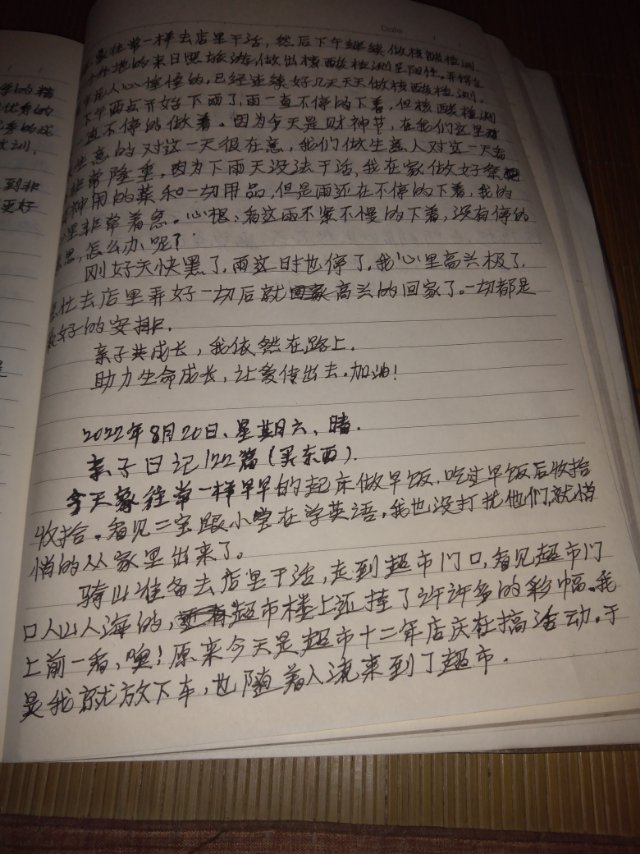 Date
往常一样去店里干活，然后下午继续做核酸检测
外地的来日照旅游做出核酸检测呈阳性，弄得全
人心惶惶的，已经连续好几天天天做核酸检测。
下午两点开始下雨了，雨一直不停的下着，但核酸检测
直不停的做着。因为今天是财神节，在我们这里
生意的对这一天很在意，我们做生意人对这一天看
非常隆重。因为下雨天没法干活，我在家做好祭
神用的菜和一切用品，但是雨还在不停的下着，我的
里非常着急。心想：看这雨不紧不慢的下着，没有停的
思，怎么办呢？
刚好天快黑了，雨这时也停了，我心里高兴极了，
去店里弄好一切后就高兴的回家了。一切都是
好的安排。
亲子共成长，我依然在路上。
助力生命成长，让爱传出去，加油！
2022年8月20日，星期六，晴。
亲子日记122篇（买东西）。
今天象往常一样早早的起床做早饭，吃过早饭后收拾
收拾。看见二宝跟小学在学英语，我也没打扰他们，就悄
悄的从家里出来了。
骑山准备去店里干活，走到超市门口，看见超市门
口人山人海的，超市楼上还挂了许许多多的彩幅。我
上前一看，噢！原来今天是超市十二年店庆在搞活动。于
是我就放下车，也随着人流来到了超市。
秀的
到非
更好